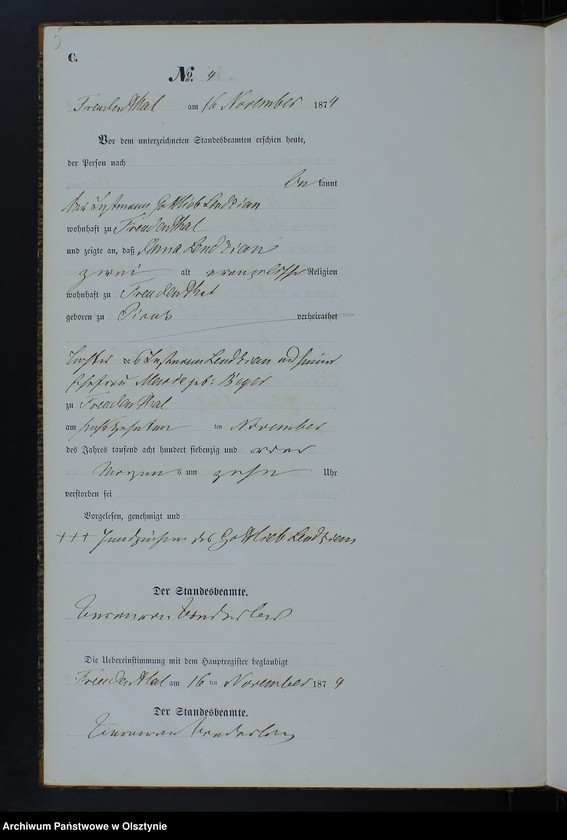 5
C.
No. 4
Freudenthal am 16 November 1874
Vor dem unterzeichneten Standesbeamten erschien heute,
der Person nach
bekannt
der Gottlieb Lendzian
wohnhaft zu Freudenthal
und zeigte an, daß Anna Lendzian
zwei alt evangelische Religion
wohnhaft zu Freudenthal
geboren zu verheirathet
Tochter des Lendzian und seiner
Ehefrau geb:
zu Freudenthal
am sechszehnten ten November
des Jahres tausend acht hundert siebenzig und vier
Morgens um zehn Uhr
verstorben sei
Vorgelesen, genehmigt und
+++ Handzeichen des Gottlieb Lendzian
Der Standesbeamte.
Die Uebereinstimmung mit dem Hauptregister beglaubigt
Freudenthal am 16 ten November 1874
Der Standesbeamte.
Archiwum Państwowe w Olsztynie